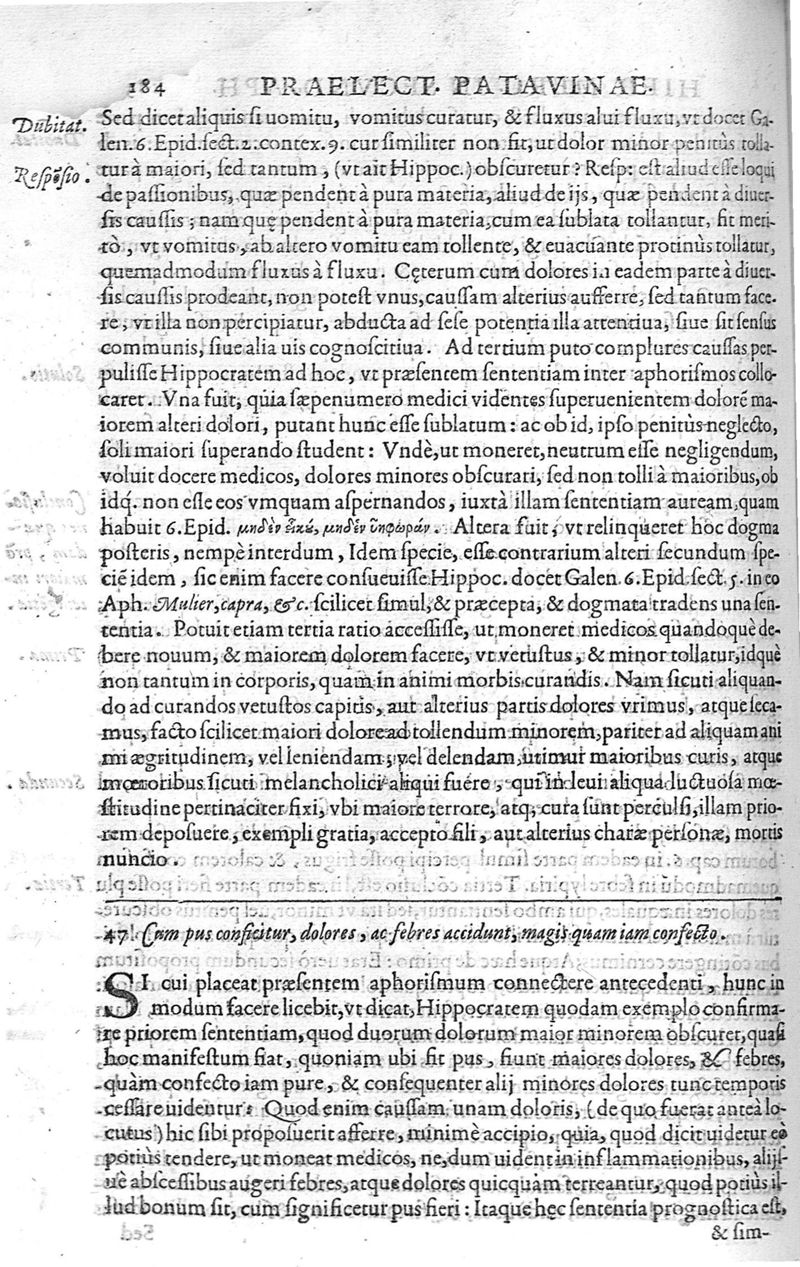 184 PRAELECT. PATAVINAE.
Dubitat.
Respõsio.
Sed dicet aliquis si uomitu, vomitus curatur, & fluxus alui fluxu, vt docet Ga-
len. 6. Epid. sect. 2. contex. 9. cur similiter non sit, ut dolor minor penitùs tolla-
tur à maiori, sed tantum, (vt ait Hippoc.) obscuretur? Resp: est aliud esse loqui
de passionibus, quæ pendent à pura materia, aliud de ijs, quæ pendent à diuer-
sis caussis; nam quę pendent à pura materia, cum ea sublata tollantur, fit meri-
tò, vt vomitus, ab altero vomitu eam tollente, & euacuante protinùs tollatur,
quemadmodum fluxus à fluxu. Cęterum cum dolores in eadem parte à diuer-
sis caussis prodeant, non potest vnus, caussam alterius aufferre, sed tantum face-
re, vt illa non percipiatur, abducta ad sese potentia illa attentiua, siue sit sensus
communis, siue alia uis cognoscitiua. Ad tertium puto complures caussas per-
pulisse Hippocratem ad hoc, vt præsentem sententiam inter aphorismos collo-
caret. Vna fuit, quia sæpenumero medici videntes superuenientem dolorẽ ma-
iorem alteri dolori, putant hunc esse sublatum: ac ob id, ipso penitùs neglecto,
soli maiori superando student: Vndè, ut moneret, neutrum esse negligendum,
voluit docere medicos, dolores minores obscurari, sed non tolli à maioribus, ob
idq. non esse eos vmquam aspernandos, iuxtà illam sententiam auream, quam
habuit 6. Epid. μηδὲν εἰκῆ, μηδὲν ὑπερορᾶν. Altera fuit, vt relinqueret hoc dogma
posteris, nempè interdum, Idem specie, esse contrarium alteri secundum spe-
ciẽ idem, sic enim facere consueuisse Hippoc. docet Galen. 6. Epid. sect. 5. in eo
Aph. Mulier, capra, &c. scilicet simul, & præcepta, & dogmata tradens una sen-
tentia. Potuit etiam tertia ratio accessisse, ut moneret medicos quandoquè de-
bere nouum, & maiorem dolorem facere, vt vetustus, & minor tollatur, idquè
non tantum in corporis, quam in animi morbis curandis. Nam sicuti aliquan-
do ad curandos vetustos capitis, aut alterius partis dolores vrimus, atque seca-
mus, facto scilicet maiori dolore ad tollendum minorem, pariter ad aliquam ani
mi ægritudinem, vel leniendam, vel delendam, utimur maioribus curis, atque
mœroribus sicuti melancholici aliqui fuére, qui in leui aliqua luctuosa mœ-
stitudine pertinaciter fixi, vbi maiore terrore, atq; cura sunt perculsi, illam prio-
rem deposuere, exempli gratia, accepto fili, aut alterius charæ personæ, mortis
nuncio.
47 Cum pus conficitur, dolores, ac febres accidunt, magis quam iam confecto.
SI cui placeat præsentem aphorismum connectere antecedenti, hunc in
modum facere licebit, vt dicat, Hippocratem quodam exemplo confirma-
re priorem sententiam, quod duorum dolorum maior minorem obscuret, quasi
hoc manifestum fiat, quoniam ubi fit pus, fiunt maiores dolores, & febres,
quàm confecto iam pure, & consequenter alij minores dolores tunc temporis
cessare uidentur: Quod enim caussam unam doloris, (de quo fuerat anteà lo-
cutus) hic sibi proposuerit afferre, minimè accipio, quia, quod dicit uidetur eò
potiùs tendere, ut moneat medicos, ne, dum uident in inflammationibus, alijs-
uè abscessibus augeri febres, atque dolores quicquàm terreantur, quod potiùs il-
lud bonum sit, cum significetur pus fieri: Itaque hęc sententia prognostica est,
& sim-